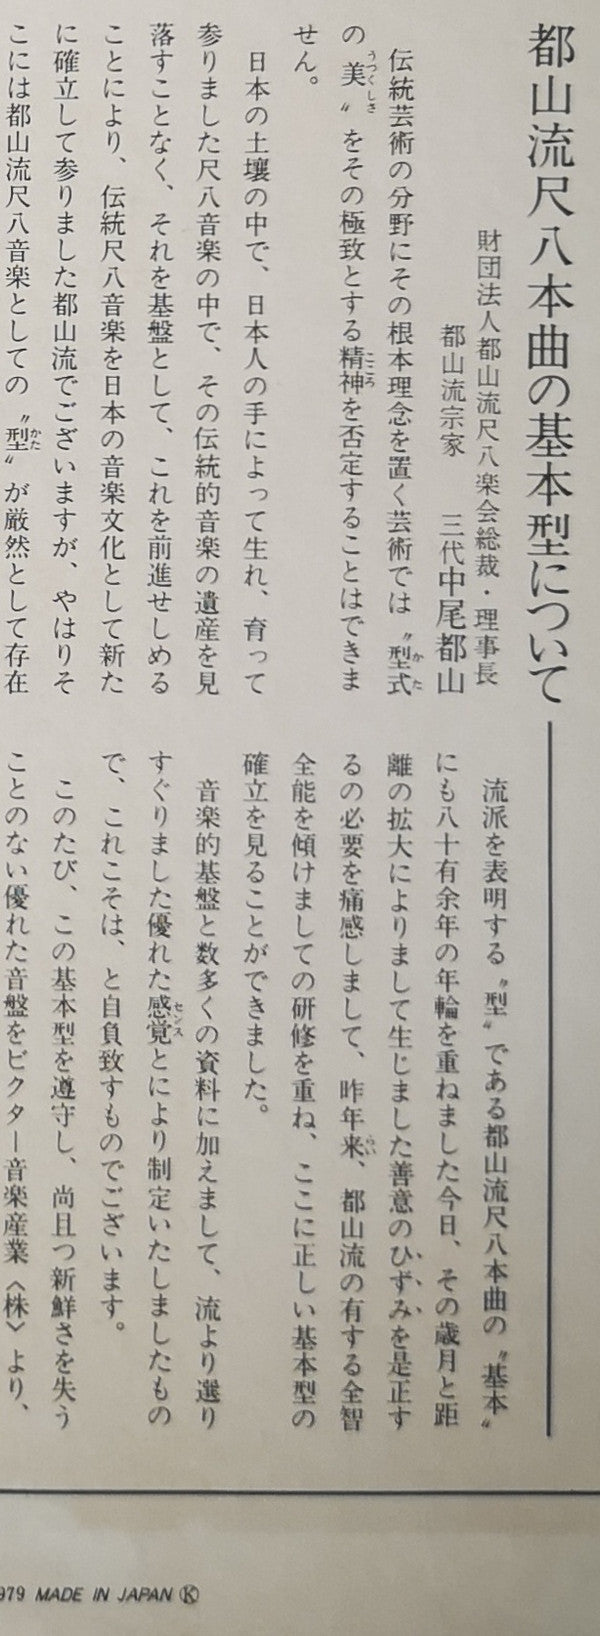 都山流尺八本曲の基本型について
財団法人都山流尺八楽会総裁・理事長
都山流宗家　三代中尾都山
伝統芸術の分野にその根本理念を置く芸術では〝型式〟
かた
の〝美〟をその極致とする精神を否定することはできま
うつくしさ
こころ
せん。
日本の土壌の中で、日本人の手によって生れ、育って
参りました尺八音楽の中で、その伝統的音楽の遺産を見
落すことなく、それを基盤として、これを前進せしめる
ことにより、伝統尺八音楽を日本の音楽文化として新た
に確立して参りました都山流でございますが、やはりそ
こには都山流尺八音楽としての〝型〟が厳然として存在
かた
流派を表明する〝型〟である都山流尺八本曲の〝基本〟
にも八十有余年の年輪を重ねました今日、その歳月と距
離の拡大によりまして生じました善意のひずみを是正す
るの必要を痛感しまして、昨年来、都山流の有する全智
らい
全能を傾けましての研修を重ね、ここに正しい基本型の
確立を見ることができました。
音楽的基盤と数多くの資料に加えまして、流より選り
すぐりました優れた感覚とにより制定いたしましたもの
センス
で、これこそは、と自負致すものでございます。
このたび、この基本型を遵守し、尚且つ新鮮さを失う
ことのない優れた音盤をビクター音楽産業〈株〉より、
979 MADE IN JAPAN Ⓚ